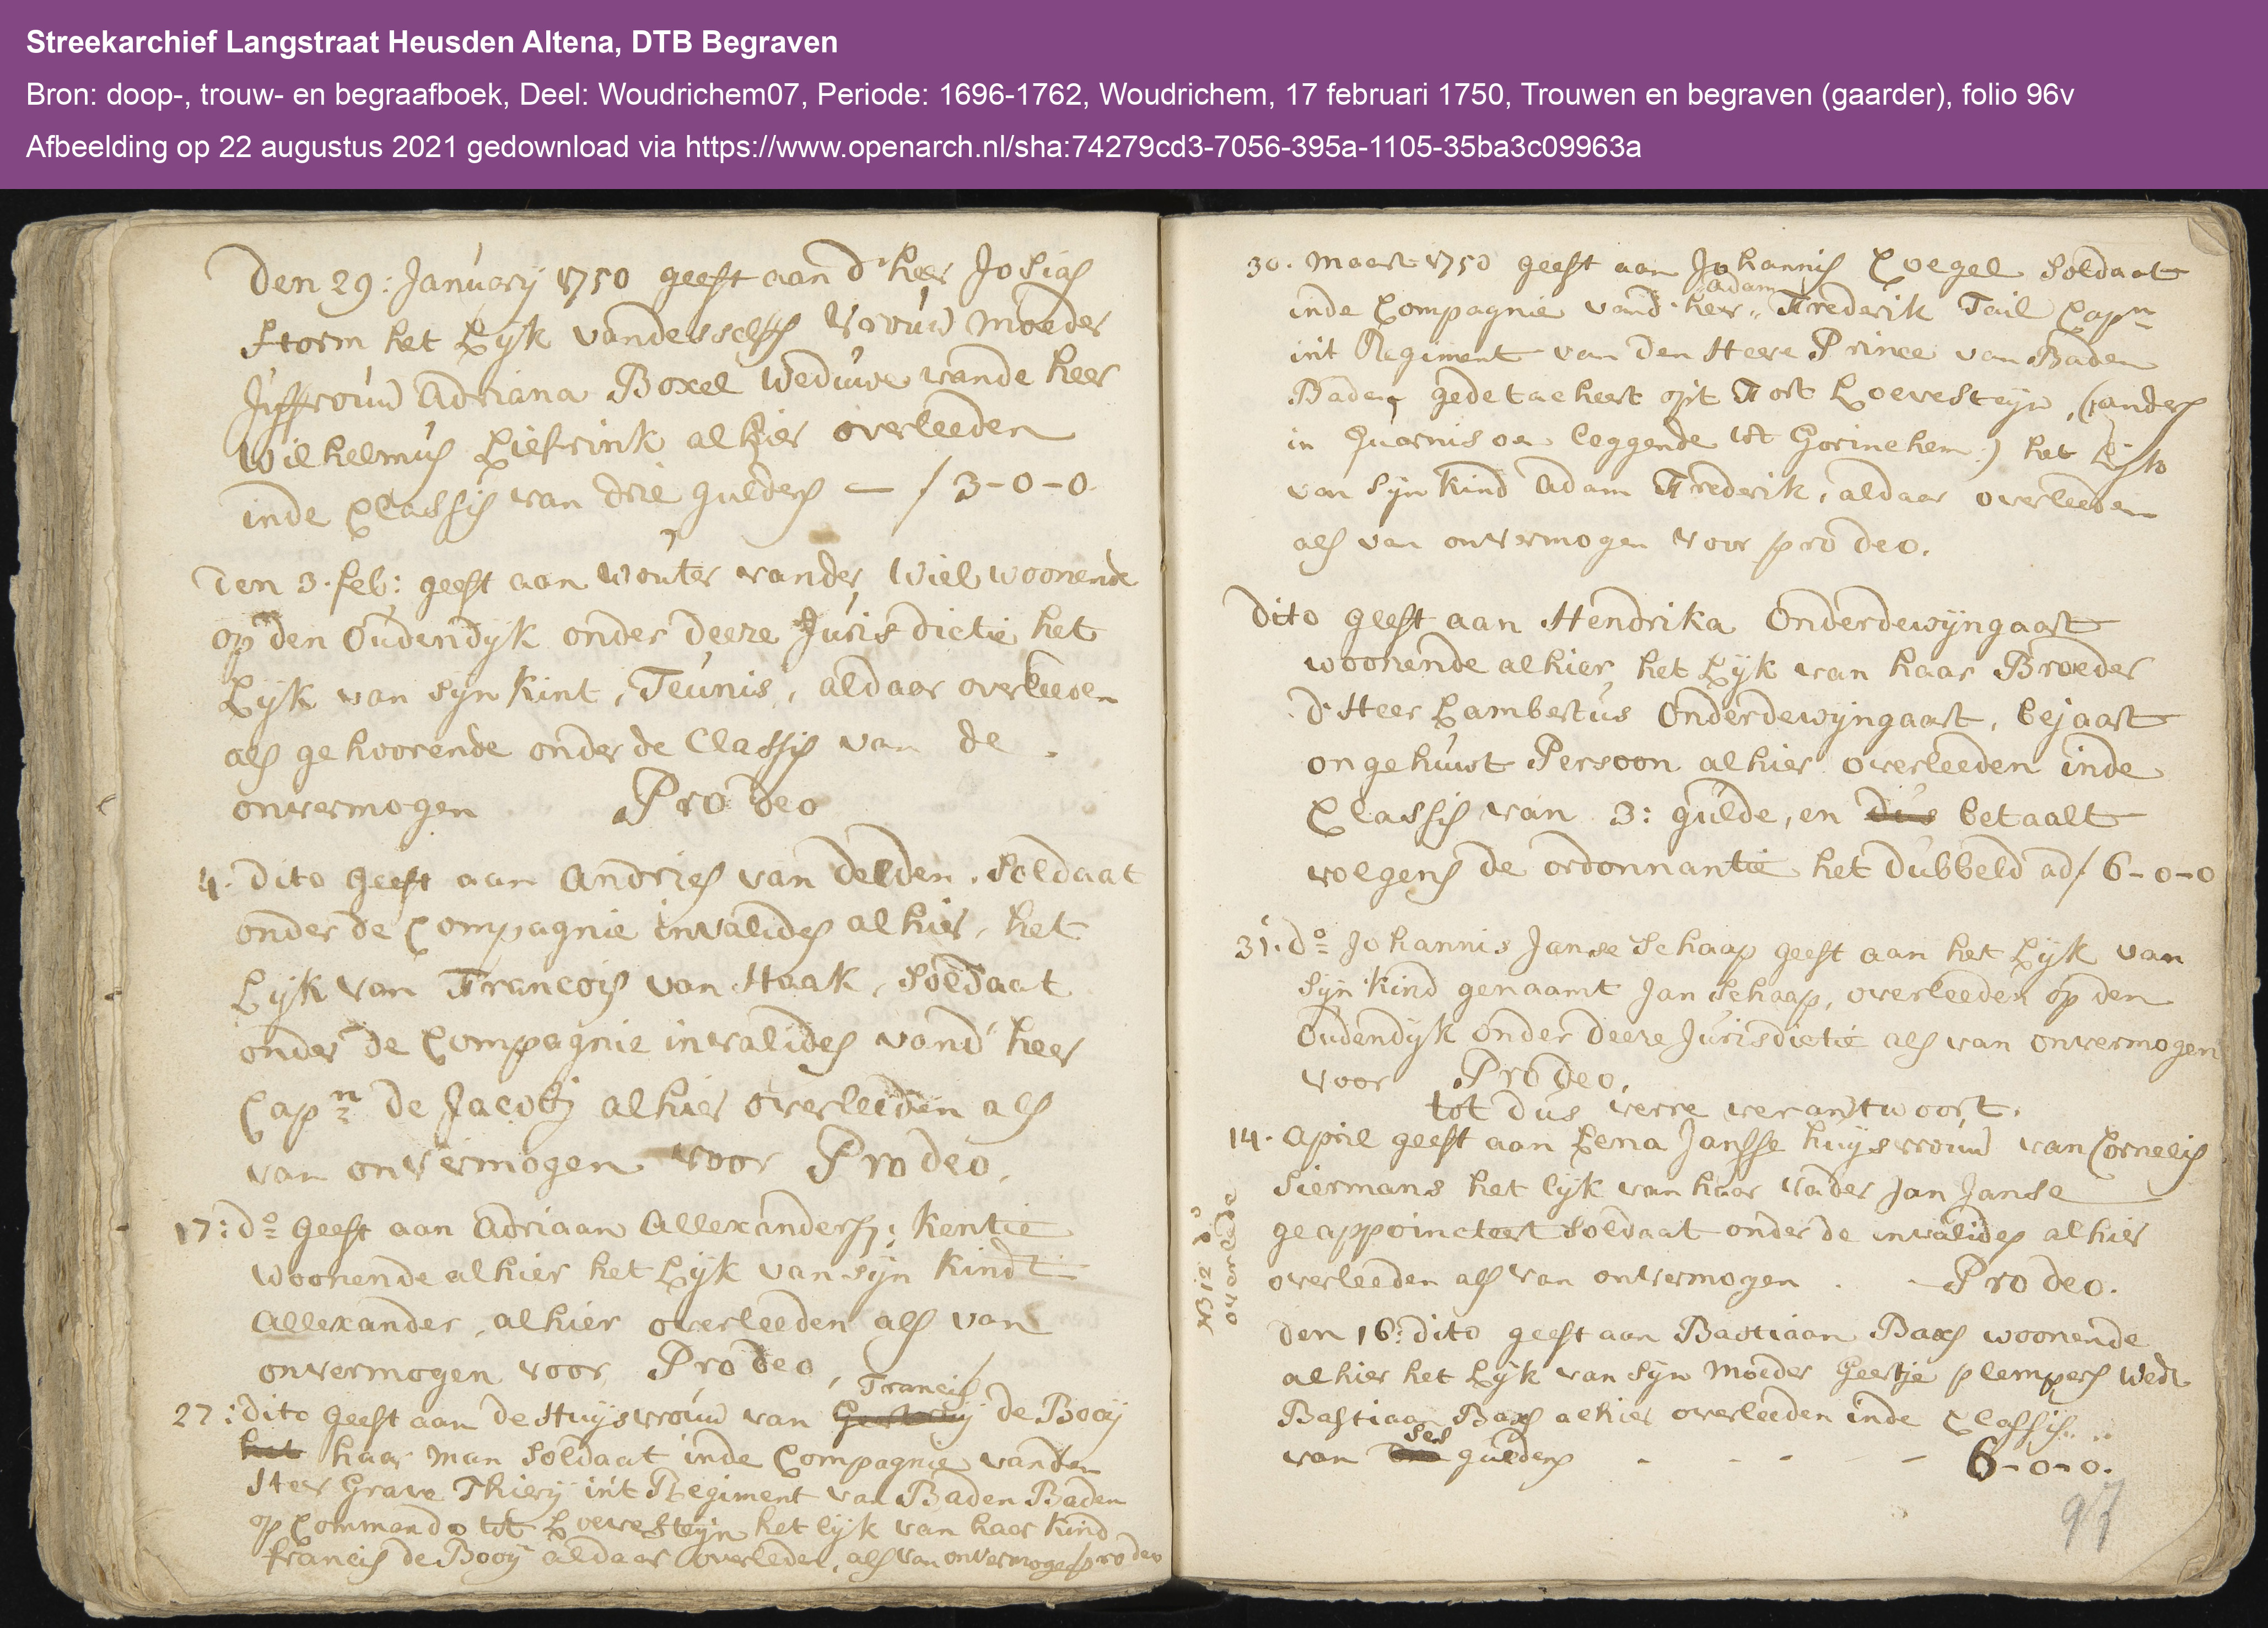 Streekarchief Langstraat Heusden Altena, DTB Begraven
Bron: doop-, trouw- en begraafboek, Deel: Woudrichem07, Periode: 1696-1762, Woudrichem, 17 februari 1750, Trouwen en begraven (gaarder), folio 96v
Afbeelding op 22 augustus 2021 gedownload via https://www.openarch.nl/sha:74279cd3-7056-395a-1105-35ba3c09963a
Den 29: January 1750 geeft aan d'heer Josias
Storm het Lijk vandesselfs Vrouw Moeder
Juffrouw Adriana Boxel Weduwe vande heer
Wilhelmus Liefrink alhier overleeden
inde Classis van drie guldens — f 3-0-0
Den 3. feb: geeft aan Wouter vander Wiel woonende
op den Oudendijk onder deeze Jurisdictie het
Lijk van sijn Kint, Teunis, aldaar overleeden
als gehoorende onder de Classis van de
onvermogen Pro Deo
4. Dito geeft aan Andries van Delden, Soldaat
onder de Compagnie invalides alhier, het
Lijk van Francois van Haak, Soldaat
onder de Compagnie invalides vand' heer
Capn de Jacobj alhier overleeden als
van onvermogen voor Pro Deo.
17: do geeft aan Adriaan Allexanders: Kentie
woonende alhier het Lijk van sijn Kindt
Allexander, alhier overleeden als van
onvermogen voor Pro Deo,
Francis
27: dito geeft aan de Huysvrouw van de Booij
het haar man Soldaat inde Compagnie vanden
Heer Grave Thierij int Regiment van Baden Baden
op Commando tot Loevesteijn het lijk van haar Kind
francis de Booij aldaar overleden, als van onvermogen pro deo
30. Maart 1750 geeft aan Johannis Coegel Soldaat
Adam
inde Compagnie vand' heer Frederik Tail Capn
int Regiment van den Heere Prince van Baden
Baden, gedetacheert opt Fort Loevesteijn, (anders
in Guarnisoen leggende tot Gorinchem) het Lijk
van Sijn Kind Adam Frederik, aldaar overleeden
als van onvermogen voor pro deo.
Dito geeft aan Hendrika Onderdewijngaart
woonende alhier het Lijk van haar Broeder
d'Heer Lambertus Onderdewijngaart, bejaart
ongehuwt Persoon alhier overleeden inde
Classis van 3: gulde, en dus betaalt
volgens de ordonnantie het dubbeld ad f 6-0-0
31. do Johannis Janse Schaap geeft aan het Lijk van
Sijn Kind genaamt Jan Schaap, overleeden op den
Oudendijk onder deeze Jurisdictie als van onvermogen
voor Pro Deo.
tot dus verre verantwoort.
14. April geeft aan Lena Jansse huysvrouw van Cornelis
Siermans het lijk van haar Vader Jan Janse
geappoincteert Soldaat onder de invalides alhier
overleeden als van onvermogen - Pro Deo.
NB 12 do
overleede
Den 16: dito geeft aan Bastiaan Bax woonende
alhier het Lijk van sijn Moeder Geertje plempers Wede
Bastiaan Bax alhier overleeden inde Classis
ses
van guldens - - - - 6-0-0.
97